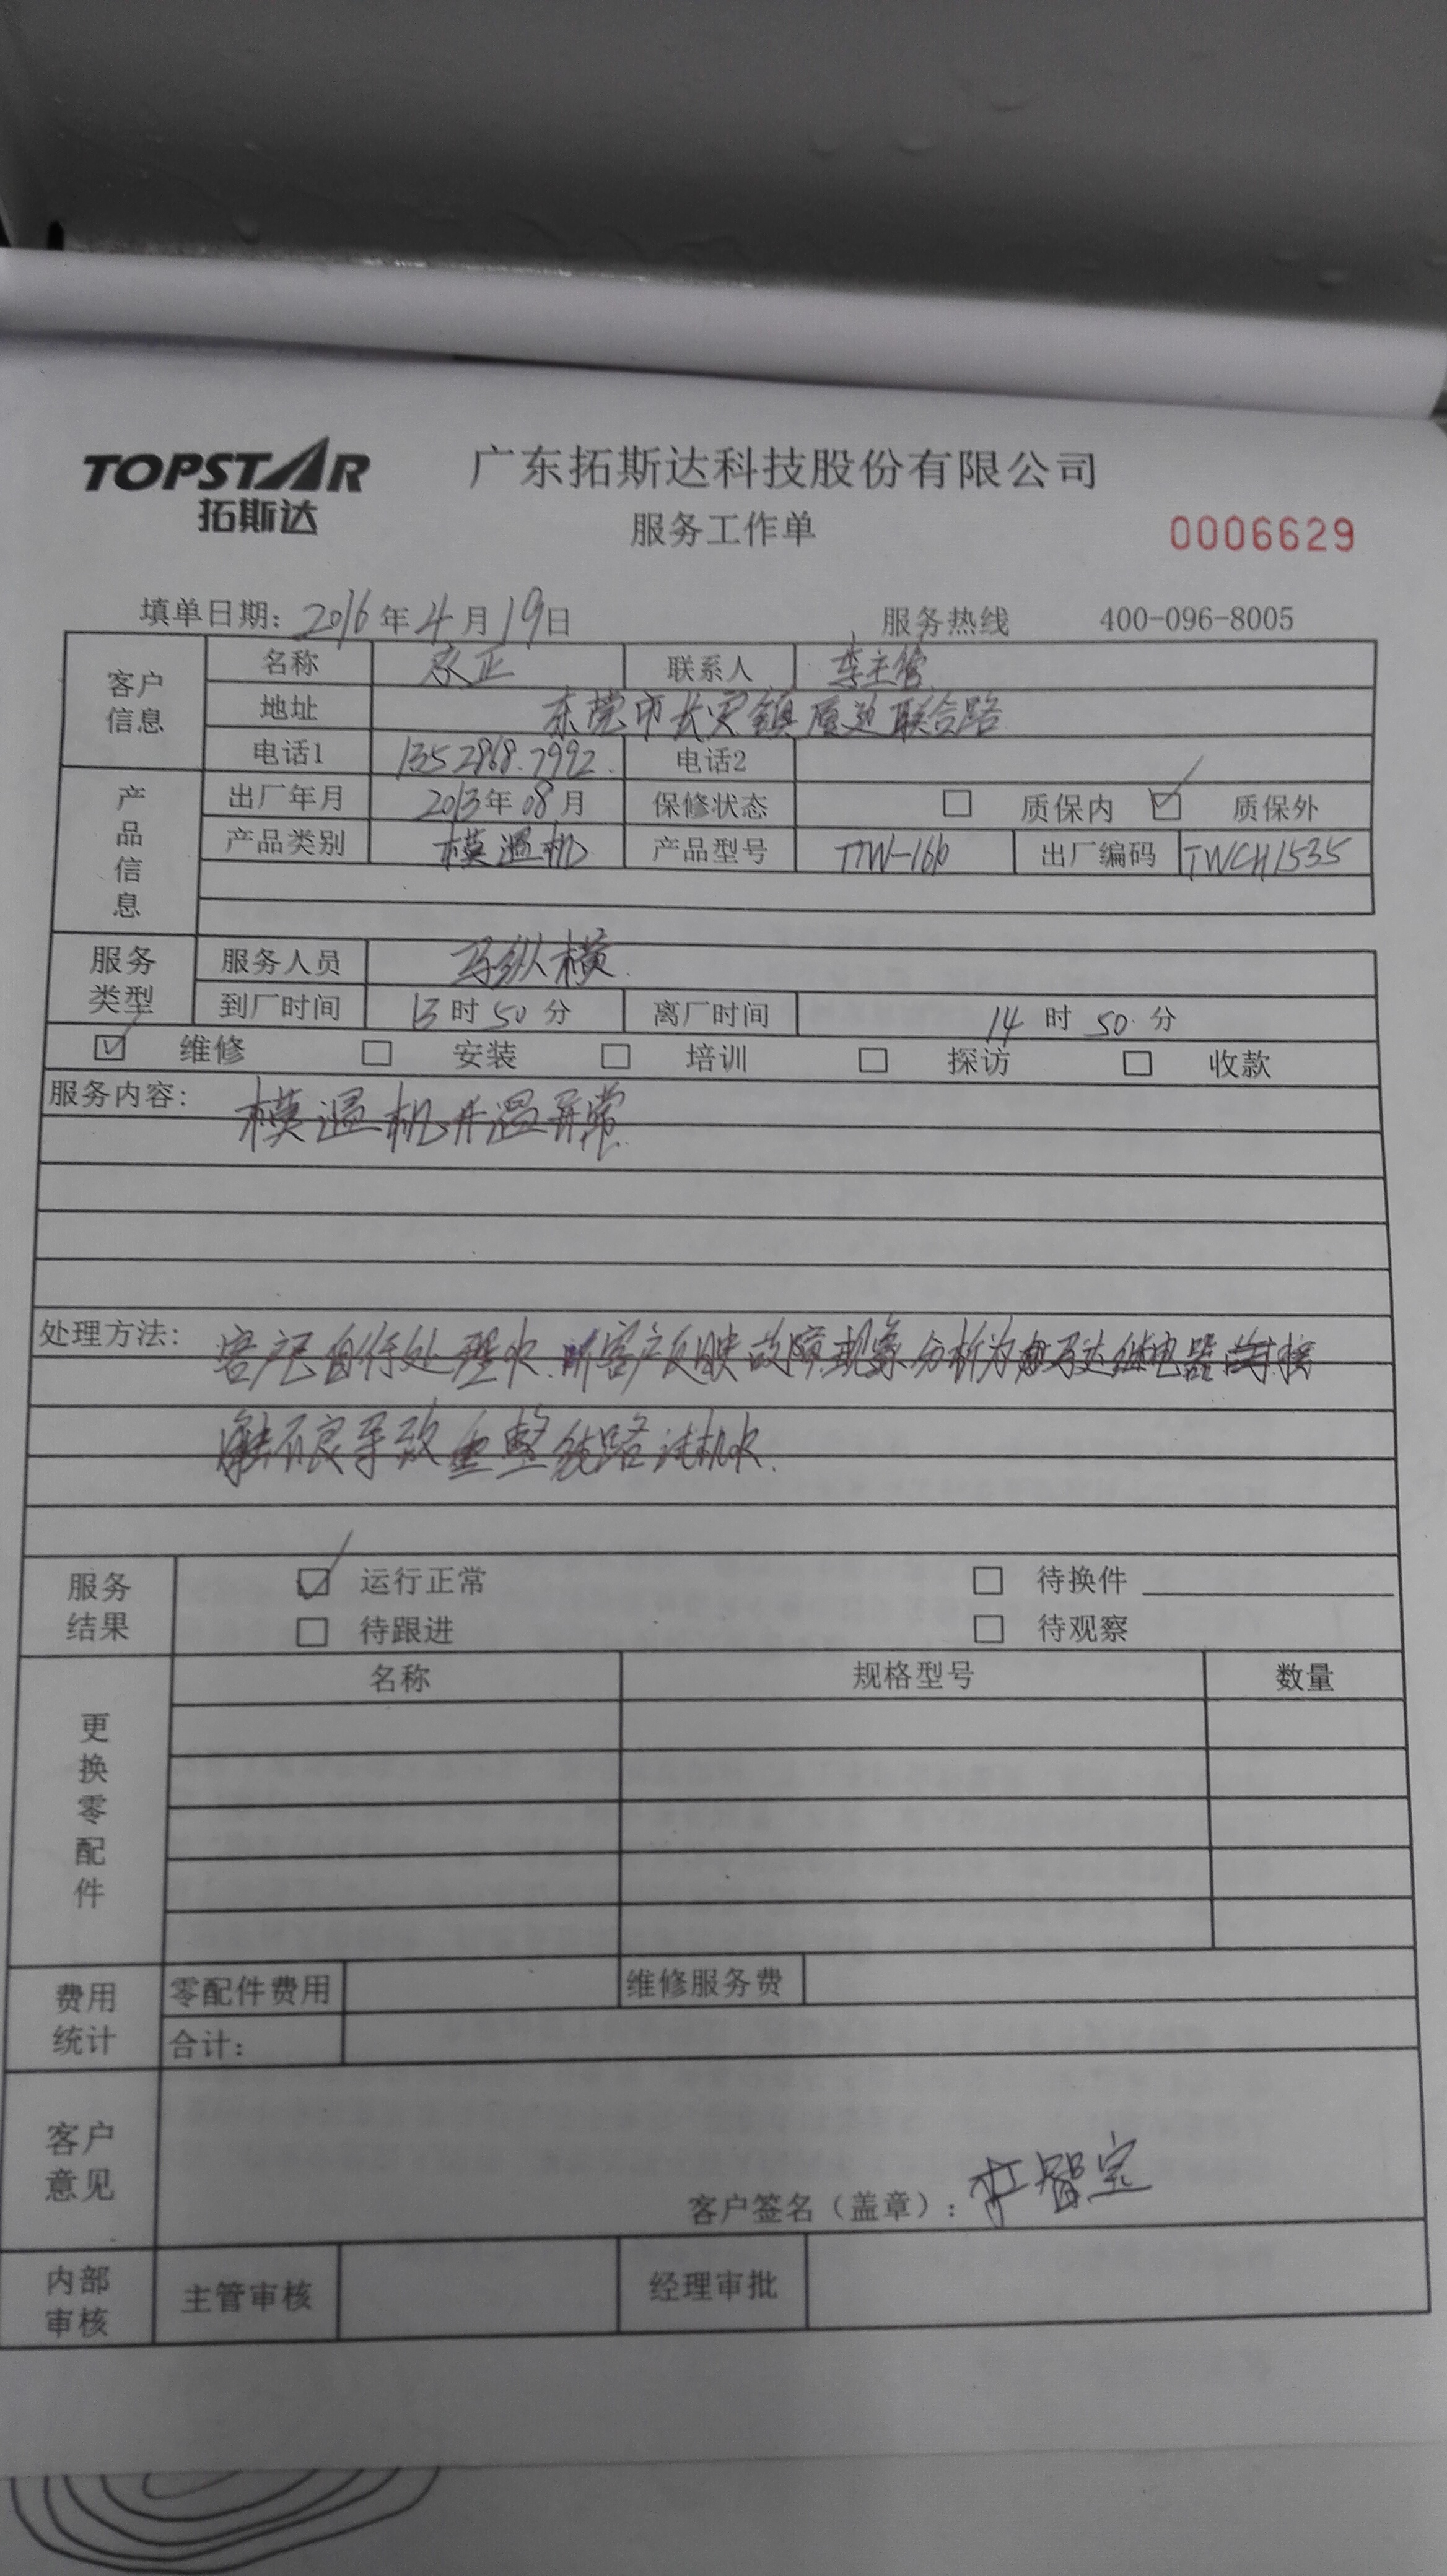 TOPSTAR
拓斯达
广东拓斯达科技股份有限公司
服务工作单
0006629
填单日期: 2016年4月19日 服务热线 400-096-8005
客户信息 名称 正 联系人 李主管
地址 东莞市长安镇厦边联合路
电话1 1352868.7992. 电话2
产品信息 出厂年月 2013年08月 保修状态 □ 质保内 ☑ 质保外
产品类别 模温机 产品型号 TTW-16b 出厂编码 TWCH1535
服务类型 服务人员 纵横
到厂时间 13时50分 离厂时间 14时50分
☑ 维修 □ 安装 □ 培训 □ 探访 □ 收款
服务内容: 模温机升温异常
处理方法: 客户已自行处理 听客户反映故障现象分析为马达继电器接
触不良导致 重整线路试机
服务结果 ☑ 运行正常 □ 待换件
□ 待跟进 □ 待观察
更换零配件 名称 规格型号 数量
费用统计 零配件费用 维修服务费
合计:
客户意见
客户签名(盖章): 智宝
内部审核 主管审核 经理审批